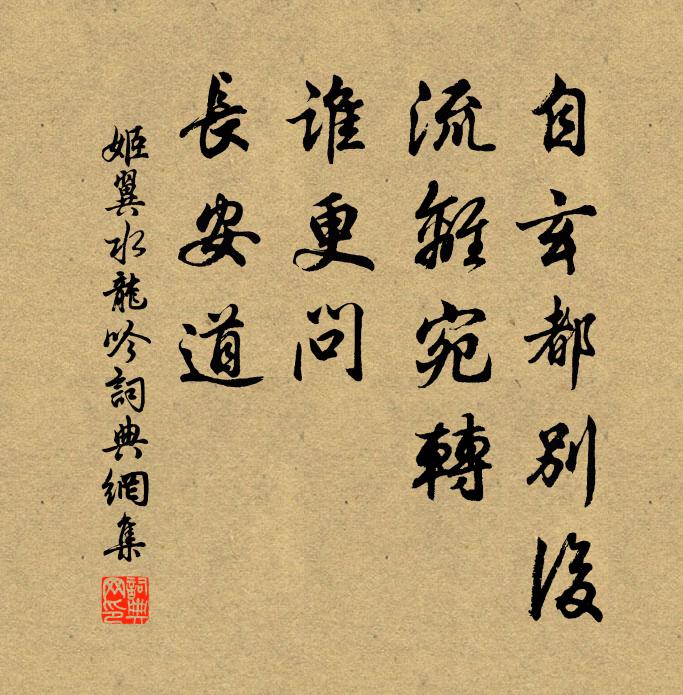 自玄都別後
流離宛轉
誰更問
長安道
姬翼水龍吟詞典網集
詞典網印